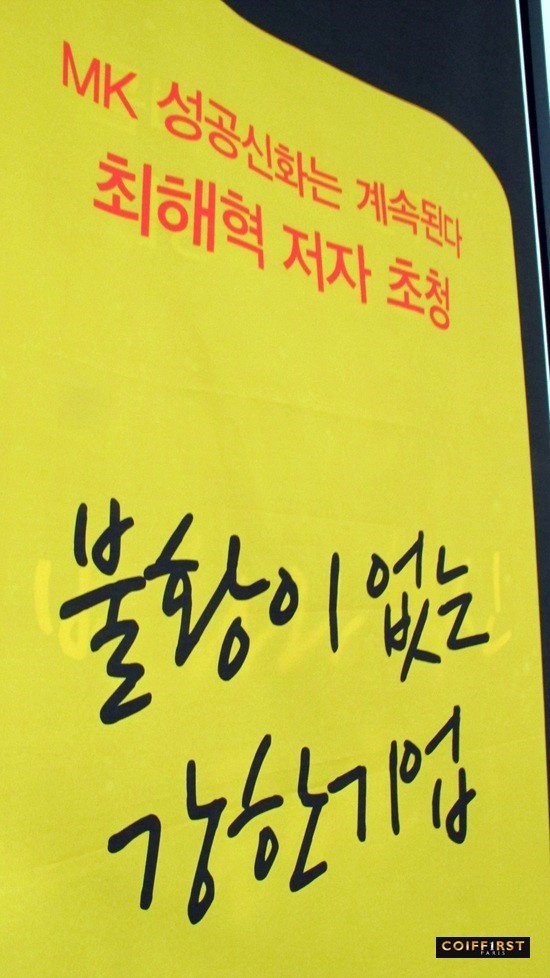 MK 성공신화는 계속된다
최해혁 저자 초청
불황이 없는
강한기업
COIFFIRST
PARIS